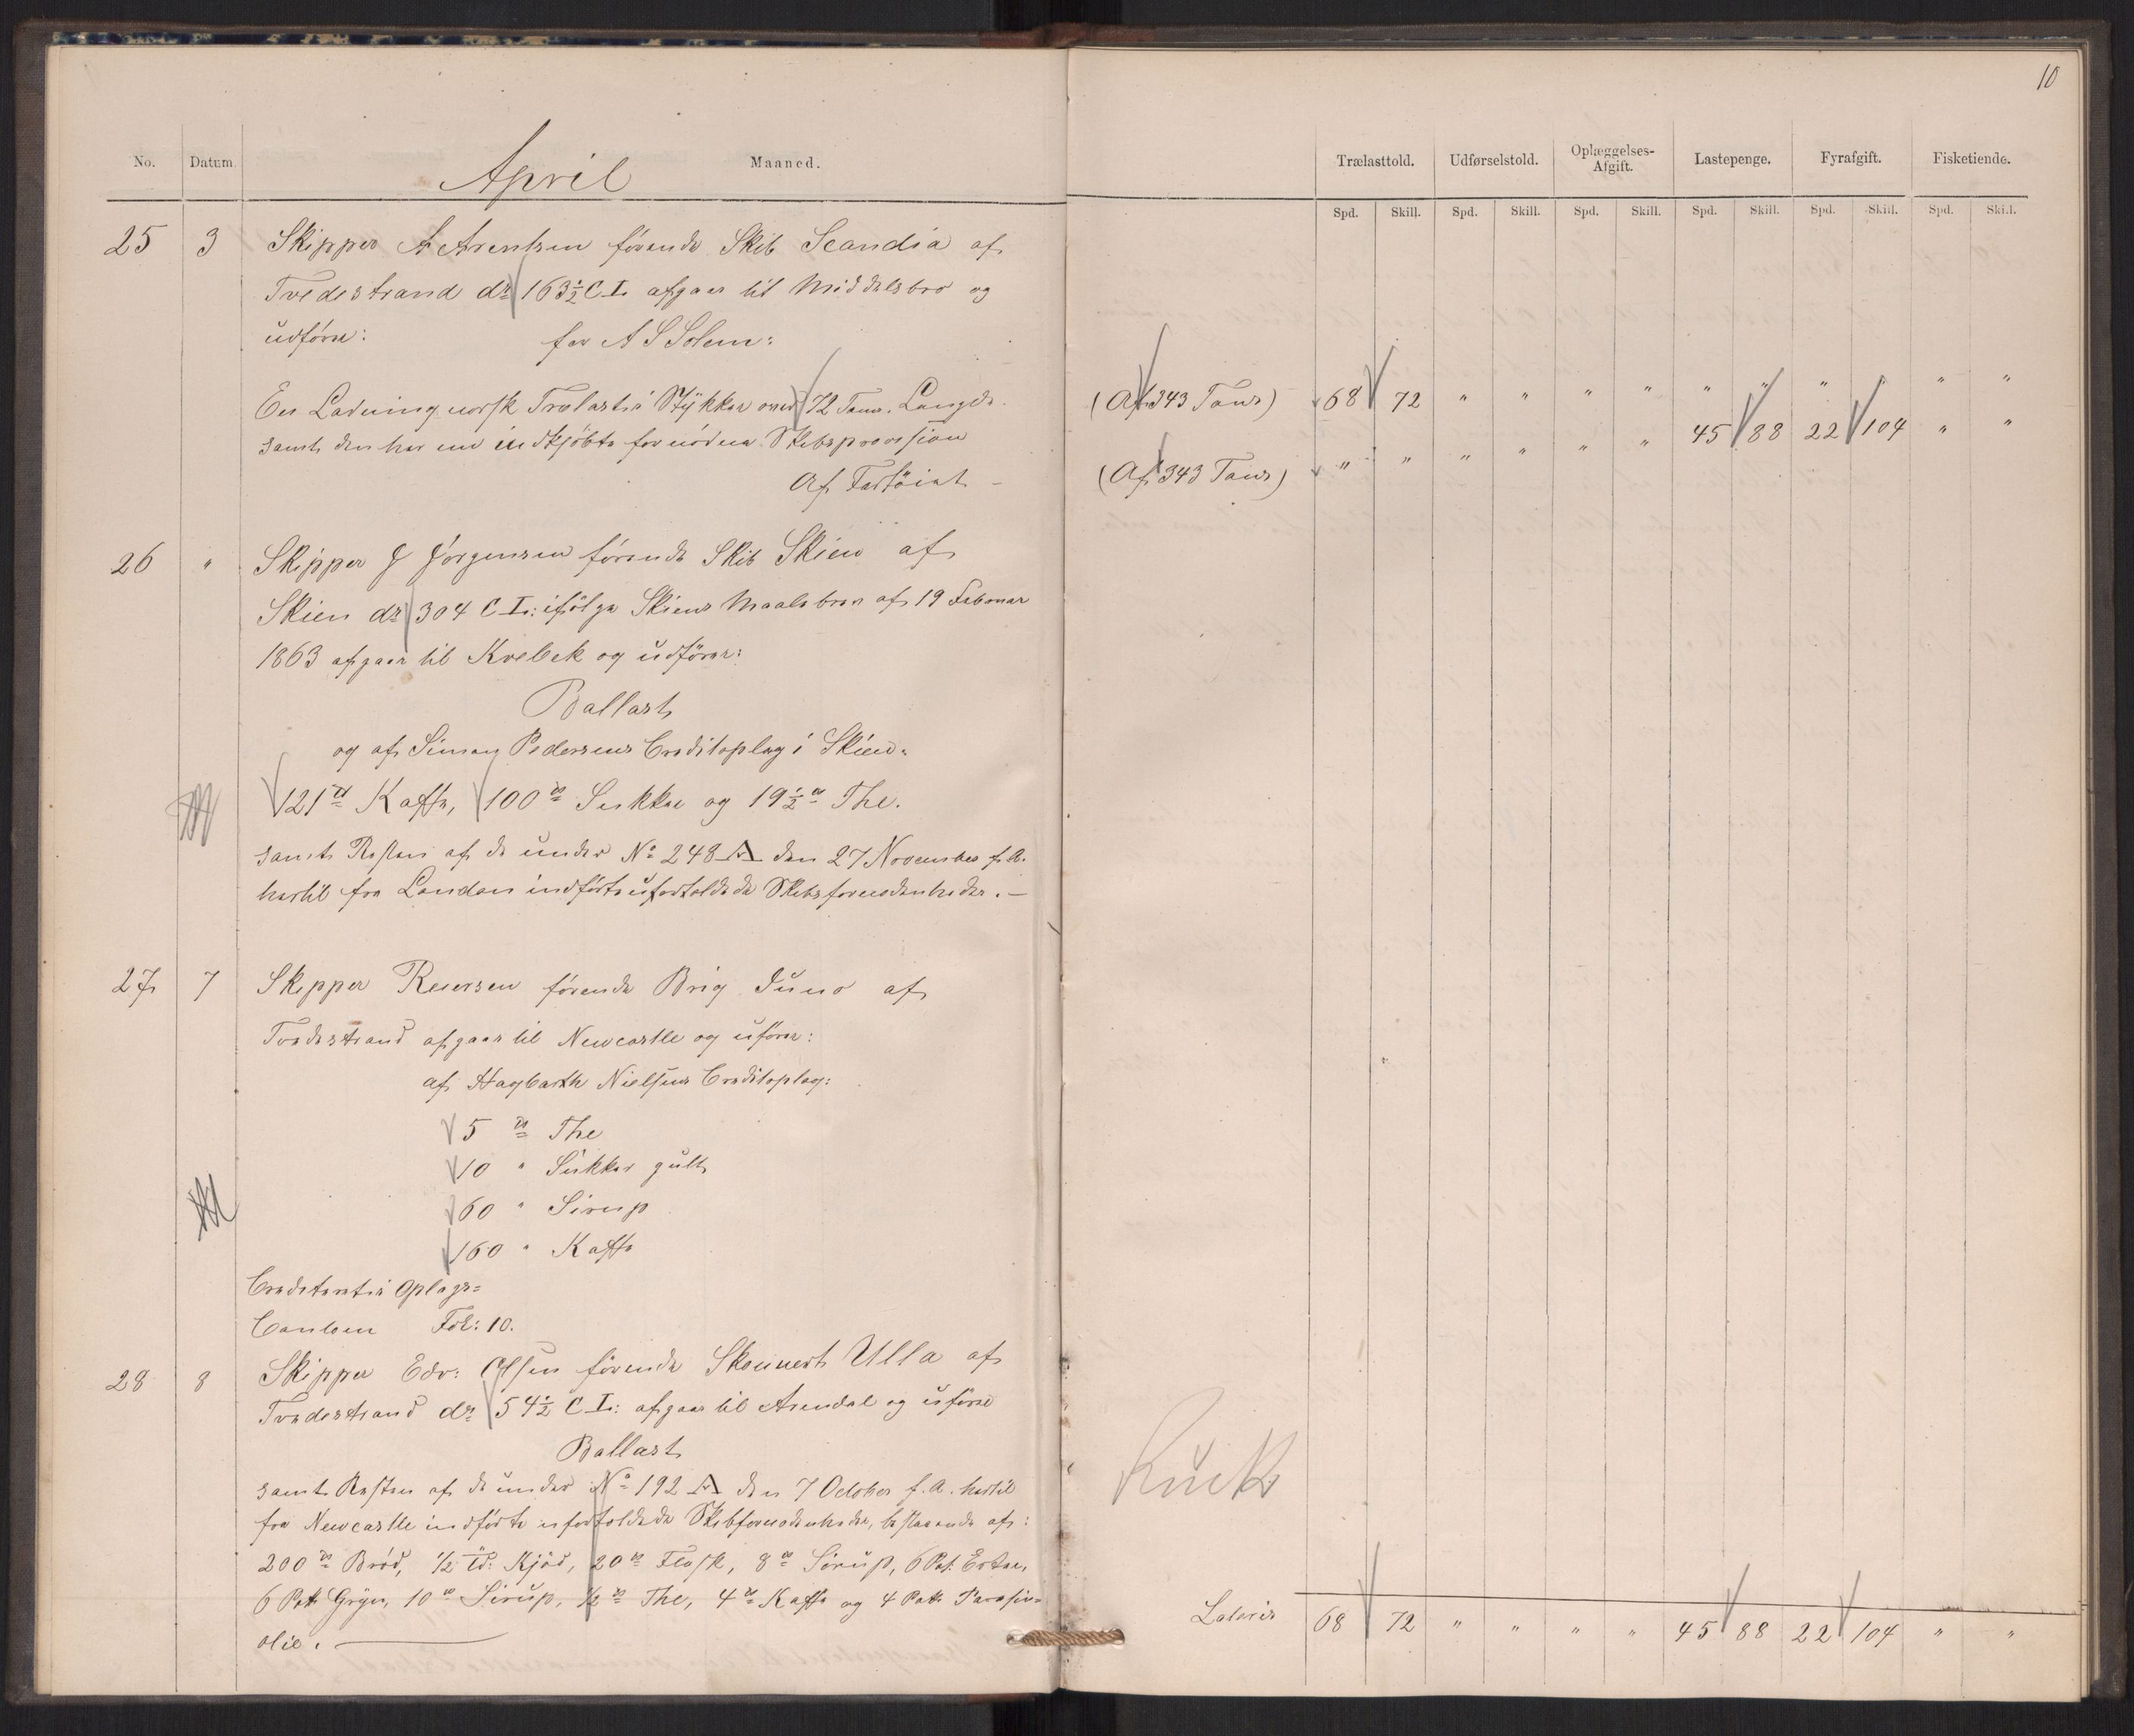 10
No. Datum. April Maaned.
Trælasttold. Udførselstold. Oplæggelses-Afgift. Lastepenge. Fyrafgift. Fisketiende.
Spd. Skill. Spd. Skill. Spd. Skill. Spd. Skill. Spd. Skill. Spd. Skill.
25 3 Skipper A Arentsen førende Skib Scandia af
Tvedestrand dr 163½ C L afgaar til Middelsbro og
udfører: for A S Solem:
En Ladning norsk Trælast i Stykker over 72 Tons. Længde (Af 343 Tons) 68 72 " " " " " " " " " "
samt den her ind indkjøbte fornødne Skibsprovision
Af Fartöiet - (Af 343 Tons) " " " " " " 45 88 22 104 " "
26 " Skipper J Jörgensen förende Skib Skien af
Skien dr 304 C L: ifölge Skiens Maalebrev af 19 Februar
1863 afgaar til Kvebek og udförer:
Ballast
og af Simon Pedersens Creditoplag i Skien:
121 ℔ Kaffe, 100 ℔ Sukker og 19½ ℔ The.
samt Resten af de under No 248 A den 27 November f. A.
hertil fra London indförte ufortoldede Skibsfornödenheder. —
27 7 Skipper Reiersen förende Brig Juno af
Tvedestrand afgaar til Newcastle og uförer:
af Hagbarth Nielsens Creditoplag:
5 ℔ The
10 " Sukker gult
60 " Sirup
160 " Kaffe
Oplags=
Fol: 10.
28 8 Skipper Edv: Olsen förende Skonnert Ulla af
Tvedestrand dr 54½ C L: afgaar til Arendal og uförer
Ballast
samt Resten af de under No 192 A den 7 October f. A. hertil
fra Newcastle indförte ufortoldede Skibsfornödenheder, bestaaende af:
200 ℔ Bröd, 1/2 Td: Kjöd, 20 ℔ Flesk, 8 ℔ Sirup, 6 Pot Erter,
6 Pot Gryn, 10 ℔ Sirup, 1/2 ℔ The, 4 ℔ Kaffe og 4 Pot Parafin=
olie. —
Lateris 68 72 " " " " 45 88 22 104 " "